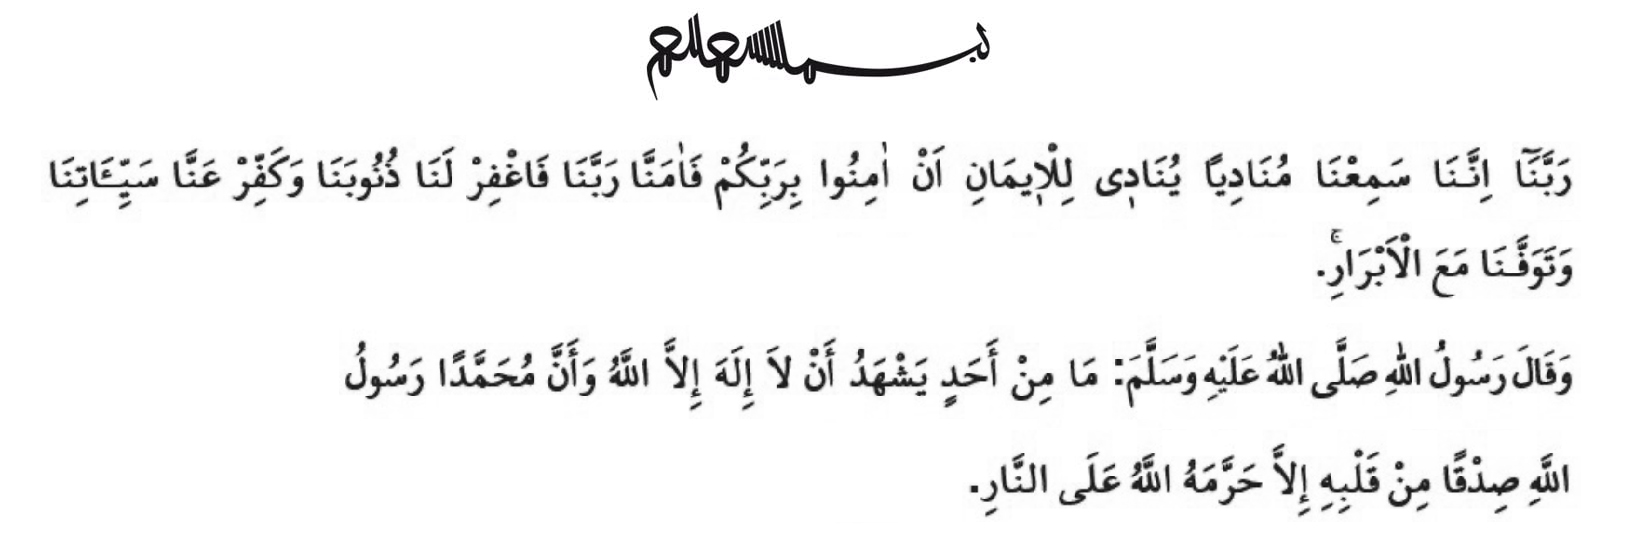 بسم الله الرحمن الرحيم
رَبَّنَٓا اِنَّـنَا سَمِعْنَا مُنَادِيًا يُنَاد۪ى لِلْا۪يمَانِ اَنْ اٰمِنُوا بِرَبِّكُمْ فَاٰمَنَّا رَبَّنَا فَاغْفِرْ لَنَا ذُنُوبَنَا وَكَفِّرْ عَنَّا سَيِّـَٔاتِنَا
وَتَوَفَّـنَا مَعَ الْاَبْرَارِۚ.
وَقَالَ رَسُولُ اللّٰهِ صَلَّى اللّٰهُ عَلَيْهِ وَسَلَّمَ: مَا مِنْ أَحَدٍ يَشْهَدُ أَنْ لاَ إِلَهَ إِلاَّ اللَّهُ وَأَنَّ مُحَمَّدًا رَسُولُ
اللَّهِ صِدْقًا مِنْ قَلْبِهِ إِلاَّ حَرَّمَهُ اللَّهُ عَلَى النَّارِ.